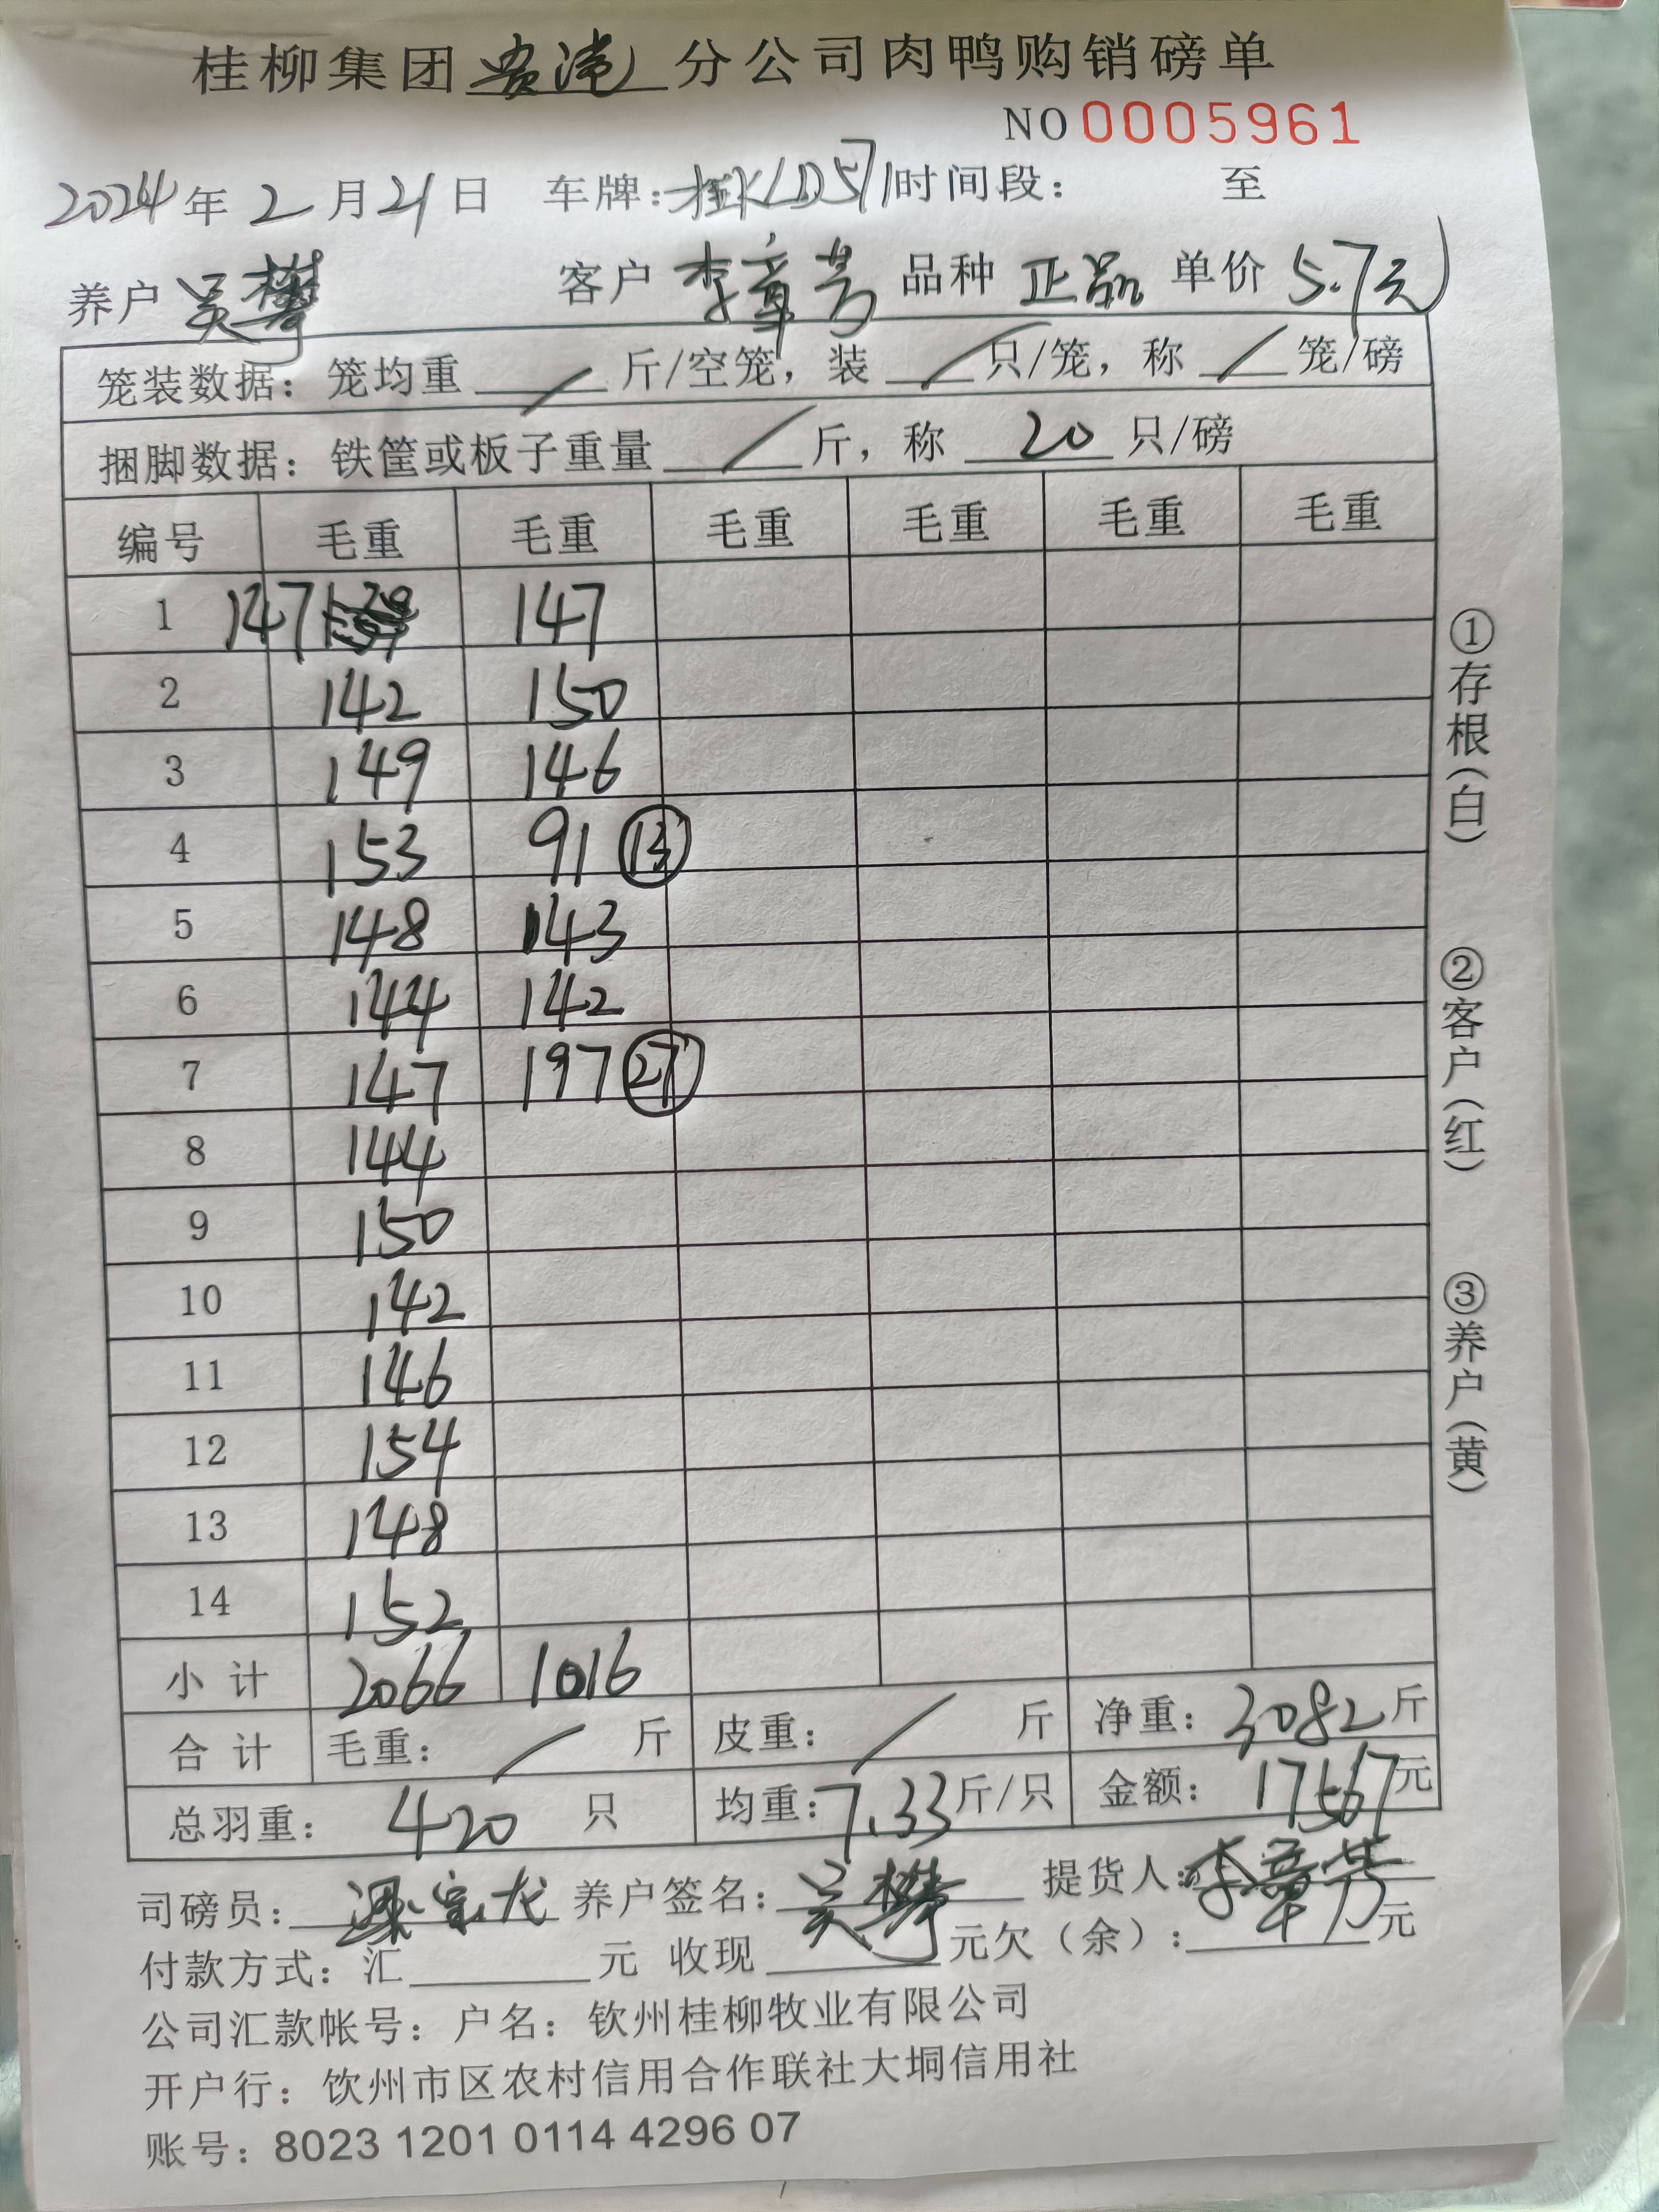 桂柳集团贵港分公司肉鸭购销磅单
NO 0005961
2024年2月21日 车牌:桂KLD571时间段: 至
养户 吴攀 客户 李章芳 品种 正品 单价 5.7元
笼装数据: 笼均重 / 斤/空笼, 装 / 只/笼, 称 / 笼/磅
捆脚数据: 铁筐或板子重量 / 斤, 称 20 只/磅
编号 毛重 毛重 毛重 毛重 毛重 毛重
1 147 147
2 142 150
3 149 146
4 153 91 ⑬
5 148 143
6 144 142
7 147 197 ㉗
8 144
9 150
10 142
11 146
12 154
13 148
14 152
小计 2066 1016
合计 毛重: / 斤 皮重: / 斤 净重: 3082斤
总羽重: 420 只 均重:7.33斤/只 金额: 17567元
司磅员: 梁宗龙 养户签名: 吴攀 提货人:李章芳
付款方式: 汇 元 收现 元欠(余): 元
公司汇款帐号: 户名: 钦州桂柳牧业有限公司
开户行: 钦州市区农村信用合作联社大垌信用社
账号: 8023 1201 0114 4296 07
①存根(白)
②客户(红)
③养户(黄)